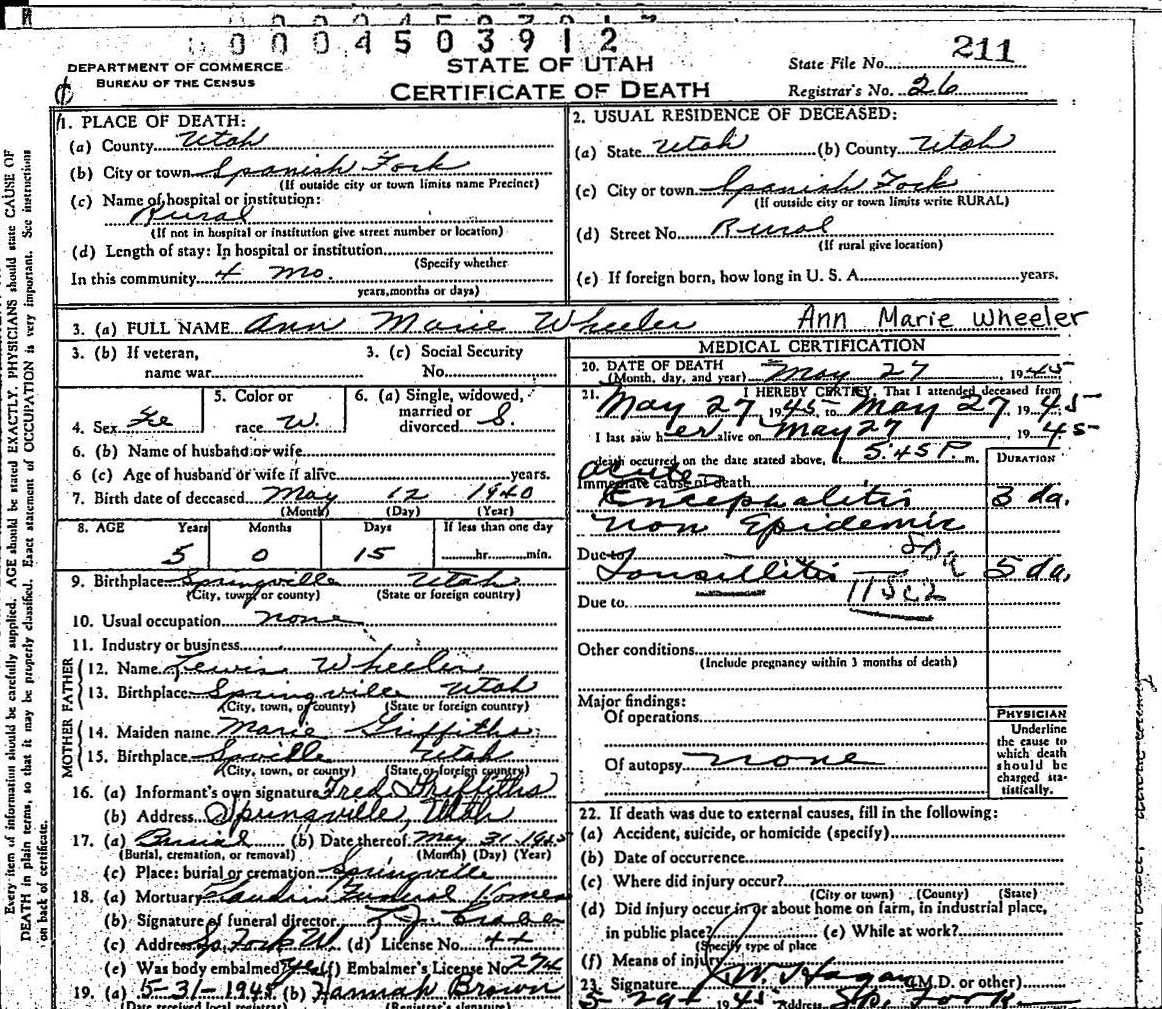 0004503912
211
DEPARTMENT OF COMMERCE
BUREAU OF THE CENSUS
STATE OF UTAH
CERTIFICATE OF DEATH
State File No.
Registrar's No. 26
1. PLACE OF DEATH:
(a) County Utah
(b) City or town Spanish Fork
(If outside city or town limits name Precinct)
(c) Name of hospital or institution:
Rural
(If not in hospital or institution give street number or location)
(d) Length of stay: In hospital or institution
(Specify whether
In this community 4 mo.
years, months or days)
2. USUAL RESIDENCE OF DECEASED:
(a) State Utah (b) County Utah
(c) City or town Spanish Fork
(If outside city or town limits write RURAL)
(d) Street No. Rural
(If rural give location)
(e) If foreign born, how long in U. S. A. years.
3. (a) FULL NAME Ann Marie Wheeler Ann Marie Wheeler
3. (b) If veteran,
name war
3. (c) Social Security
No.
4. Sex Fe
5. Color or
race W.
6. (a) Single, widowed,
married or
divorced S.
6. (b) Name of husband or wife
6 (c) Age of husband or wife if alive years.
7. Birth date of deceased May 12 1940
(Month) (Day) (Year)
8. AGE Years Months Days If less than one day
5 0 15 hr. min.
9. Birthplace Springville Utah
(City, town, or county) (State or foreign country)
10. Usual occupation none
11. Industry or business
FATHER
12. Name Lewis Wheeler
13. Birthplace Springville Utah
(City, town, or county) (State or foreign country)
MOTHER
14. Maiden name Marie Griffiths
15. Birthplace Spville Utah
(City, town, or county) (State or foreign country)
16. (a) Informant's own signature Fred Griffiths
(b) Address Springville, Utah
17. (a) Burial (b) Date thereof May 31 1945
(Burial, cremation, or removal) (Month) (Day) (Year)
(c) Place: burial or cremation Springville
18. (a) Mortuary Funeral Home
(b) Signature of funeral director
(c) Address Sp. Fork (d) License No. 44
(e) Was body embalmed? yes (f) Embalmer's License No. 274
19. (a) 5-31-1945 (b) Hannah Brown
(Date received local registrar) (Registrar's signature)
MEDICAL CERTIFICATION
20. DATE OF DEATH
(Month, day, and year) May 27 1945
21. I HEREBY CERTIFY, That I attended deceased from
May 27 1945 to May 27 1945
I last saw her alive on May 27 1945
death occurred on the date stated above, at 5:45 P m.
DURATION
Immediate cause of death
acute
Encephalitis 3 da.
Non Epidemic
Due to
Tonsillitis 5 da.
115c2
Due to
Other conditions
(Include pregnancy within 3 months of death)
Major findings:
Of operations
Of autopsy none
PHYSICIAN
Underline
the cause to
which death
should be
charged sta-
tistically.
22. If death was due to external causes, fill in the following:
(a) Accident, suicide, or homicide (specify)
(b) Date of occurrence
(c) Where did injury occur?
(City or town) (County) (State)
(d) Did injury occur in or about home on farm, in industrial place,
in public place? (e) While at work?
(Specify type of place
(f) Means of injury
23. Signature W. Hagan (M.D. or other)
5-29- 1945 Address Sp. Fork
Every item of information should be carefully supplied. AGE should be stated EXACTLY. PHYSICIANS should state CAUSE OF
DEATH in plain terms, so that it may be properly classified. Exact statement of OCCUPATION is very important. See instructions
on back of certificate.